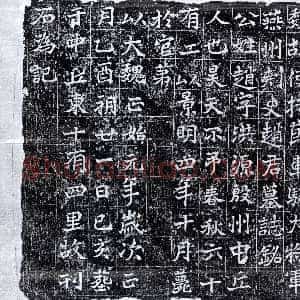 燕州刺史趙君墓誌銘
公姓趙字洪源殷州屯丘
人也昊天不弔春秋六十
有二以景明四年十月薨
於官第
以大魏正始元年歲次正
月己酉朔廿三日己亥葬
于中丘東十有四里故刊
石為記